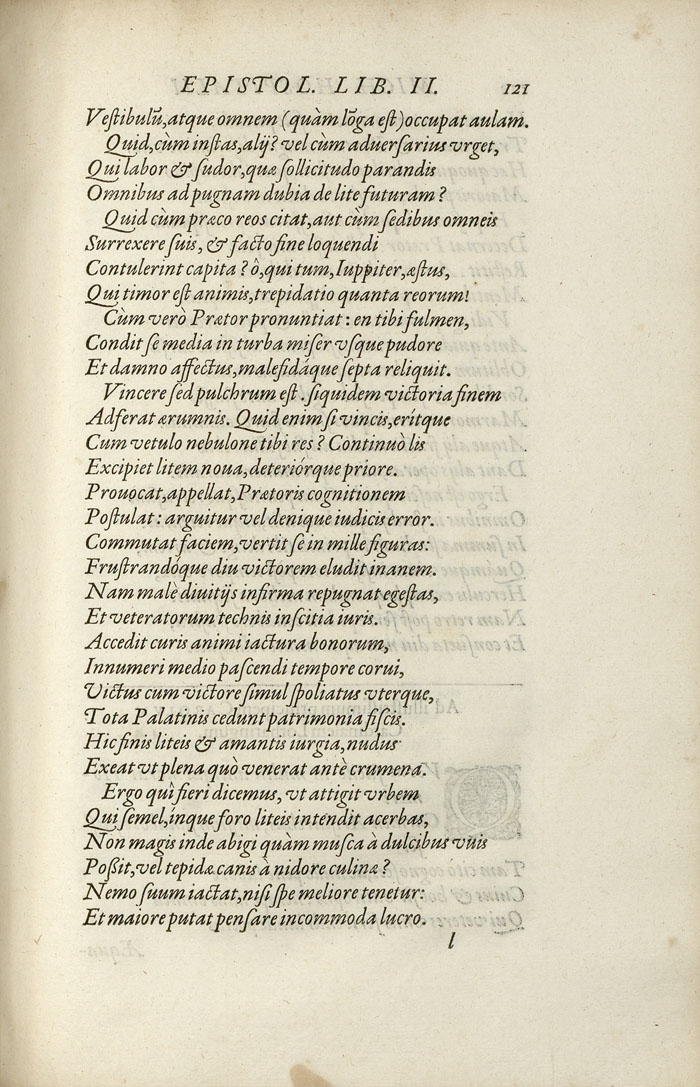 EPISTOL. LIB. II. 121
Vestibulũ, atque omnem (quàm lõga est) occupat aulam.
Quid, cùm instas, alij? vel cùm aduersarius vrget,
Qui labor & sudor, quæ sollicitudo parandis
Omnibus ad pugnam dubia de lite futuram?
Quid cùm præco reos citat, aut cùm sedibus omneis
Surrexere suis, & facto fine loquendi
Contulerint capita? ô, qui tum, Iuppiter, æstus,
Qui timor est animis, trepidatio quanta reorum!
Cùm verò Prætor pronuntiat: en tibi fulmen,
Condit se media in turba miser vsque pudore
Et damno affectus, malefidáque septa reliquit.
Vincere sed pulchrum est. siquidem victoria finem
Adferat ærumnis. Quid enim si vincis, erítque
Cum vetulo nebulone tibi res? Continuò lis
Excipiet litem noua, deteriórque priore.
Prouocat, appellat, Prætoris cognitionem
Postulat: arguitur vel denique iudicis error.
Commutat faciem, vertit se in mille figuras:
Frustrandóque diu victorem eludit inanem.
Nam malè diuitijs infirma repugnat egestas,
Et veteratorum technis inscitia iuris.
Accedit curis animi iactura bonorum,
Innumeri medio pascendi tempore corui,
Victus cum victore simul spoliatus vterque,
Tota Palatinis cedunt patrimonia fiscis.
Hic finis liteis & amantis iurgia, nudus
Exeat vt plena quò venerat antè crumena.
Ergo quî fieri dicemus, vt attigit vrbem
Qui semel, ínque foro liteis intendit acerbas,
Non magis inde abigi quàm musca à dulcibus vuis
Poßit, vel tepidæ canis à nidore culinæ?
Nemo suum iactat, nisi spe meliore tenetur:
Et maiore putat pensare incommoda lucro.
l